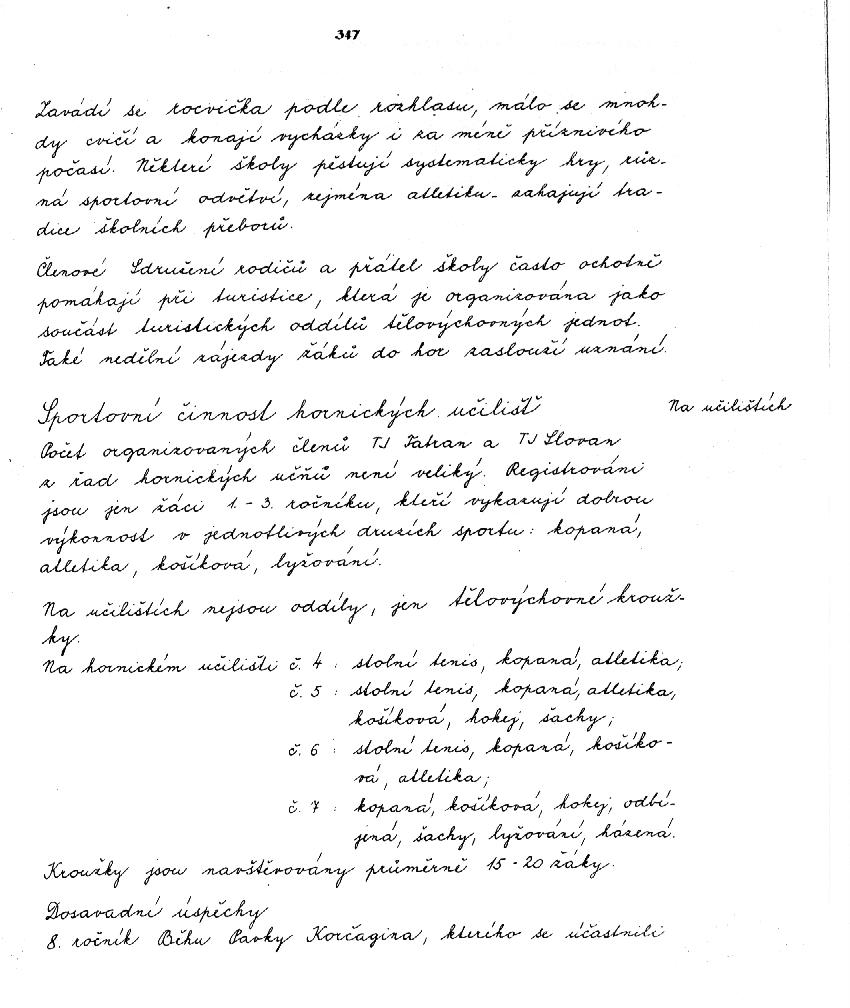 347
Zavádí se rozvička podle rozhlasu, málo se mnoh-
dy cvičí a konají vycházky i za méně příznivého
počasí. Některé školy pěstují systematicky hry, růz-
ná sportovní odvětví, zejména atletiku - zahajují tra-
dice školních přeborů.
Členové Sdružení rodičů a přátel školy často ochotně
pomáhají při turistice, která je organizována jako
součást turistických oddílů tělovýchovných jednot.
Také nedělní zájezdy žáků do hor zaslouží uznání.
Sportovní činnost hornických učilišť
Na učilištích
Počet organizovaných členů TJ Tatran a TJ Slovan
z řad hornických učňů není veliký. Registrováni
jsou jen žáci 1. - 3. ročníku, kteří vykazují dobrou
výkonnost v jednotlivých druzích sportu: kopaná,
atletika, košíková, lyžování.
Na učilištích nejsou oddíly, jen tělovýchovné krouž-
ky.
Na hornickém učilišti č. 4 : stolní tenis, kopaná, atletika;
č. 5 : stolní tenis, kopaná, atletika,
košíková, hokej, šachy;
č. 6 : stolní tenis, kopaná, košíko-
vá, atletika;
č. 7 : kopaná, košíková, hokej, odbí-
jená, šachy, lyžování, házená.
Kroužky jsou navštěvovány průměrně 15 - 20 žáky.
Dosavadní úspěchy
8. ročník Běhu Pavky Korčagina, kterého se účastnili